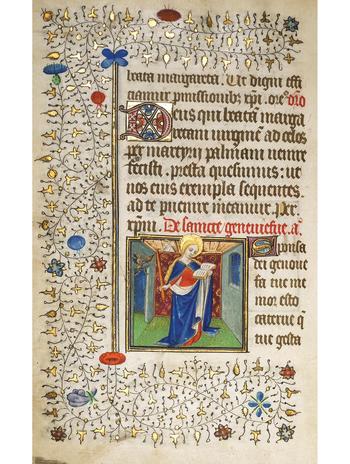 beata margareta. Ut digni effi
ciamur pmissionibꝫ xpi. oro
Deus qui beatam marga
retam uirginē ad celos
per martyrii palmam uenire
fecisti. presta quesumus: ut
nos eius exempla sequentes.
ad te puenire mereamur. Per
xpm. De sancte
Sponsa
dei genoue
fa tue me
mor esto
caterue q
tue gesta